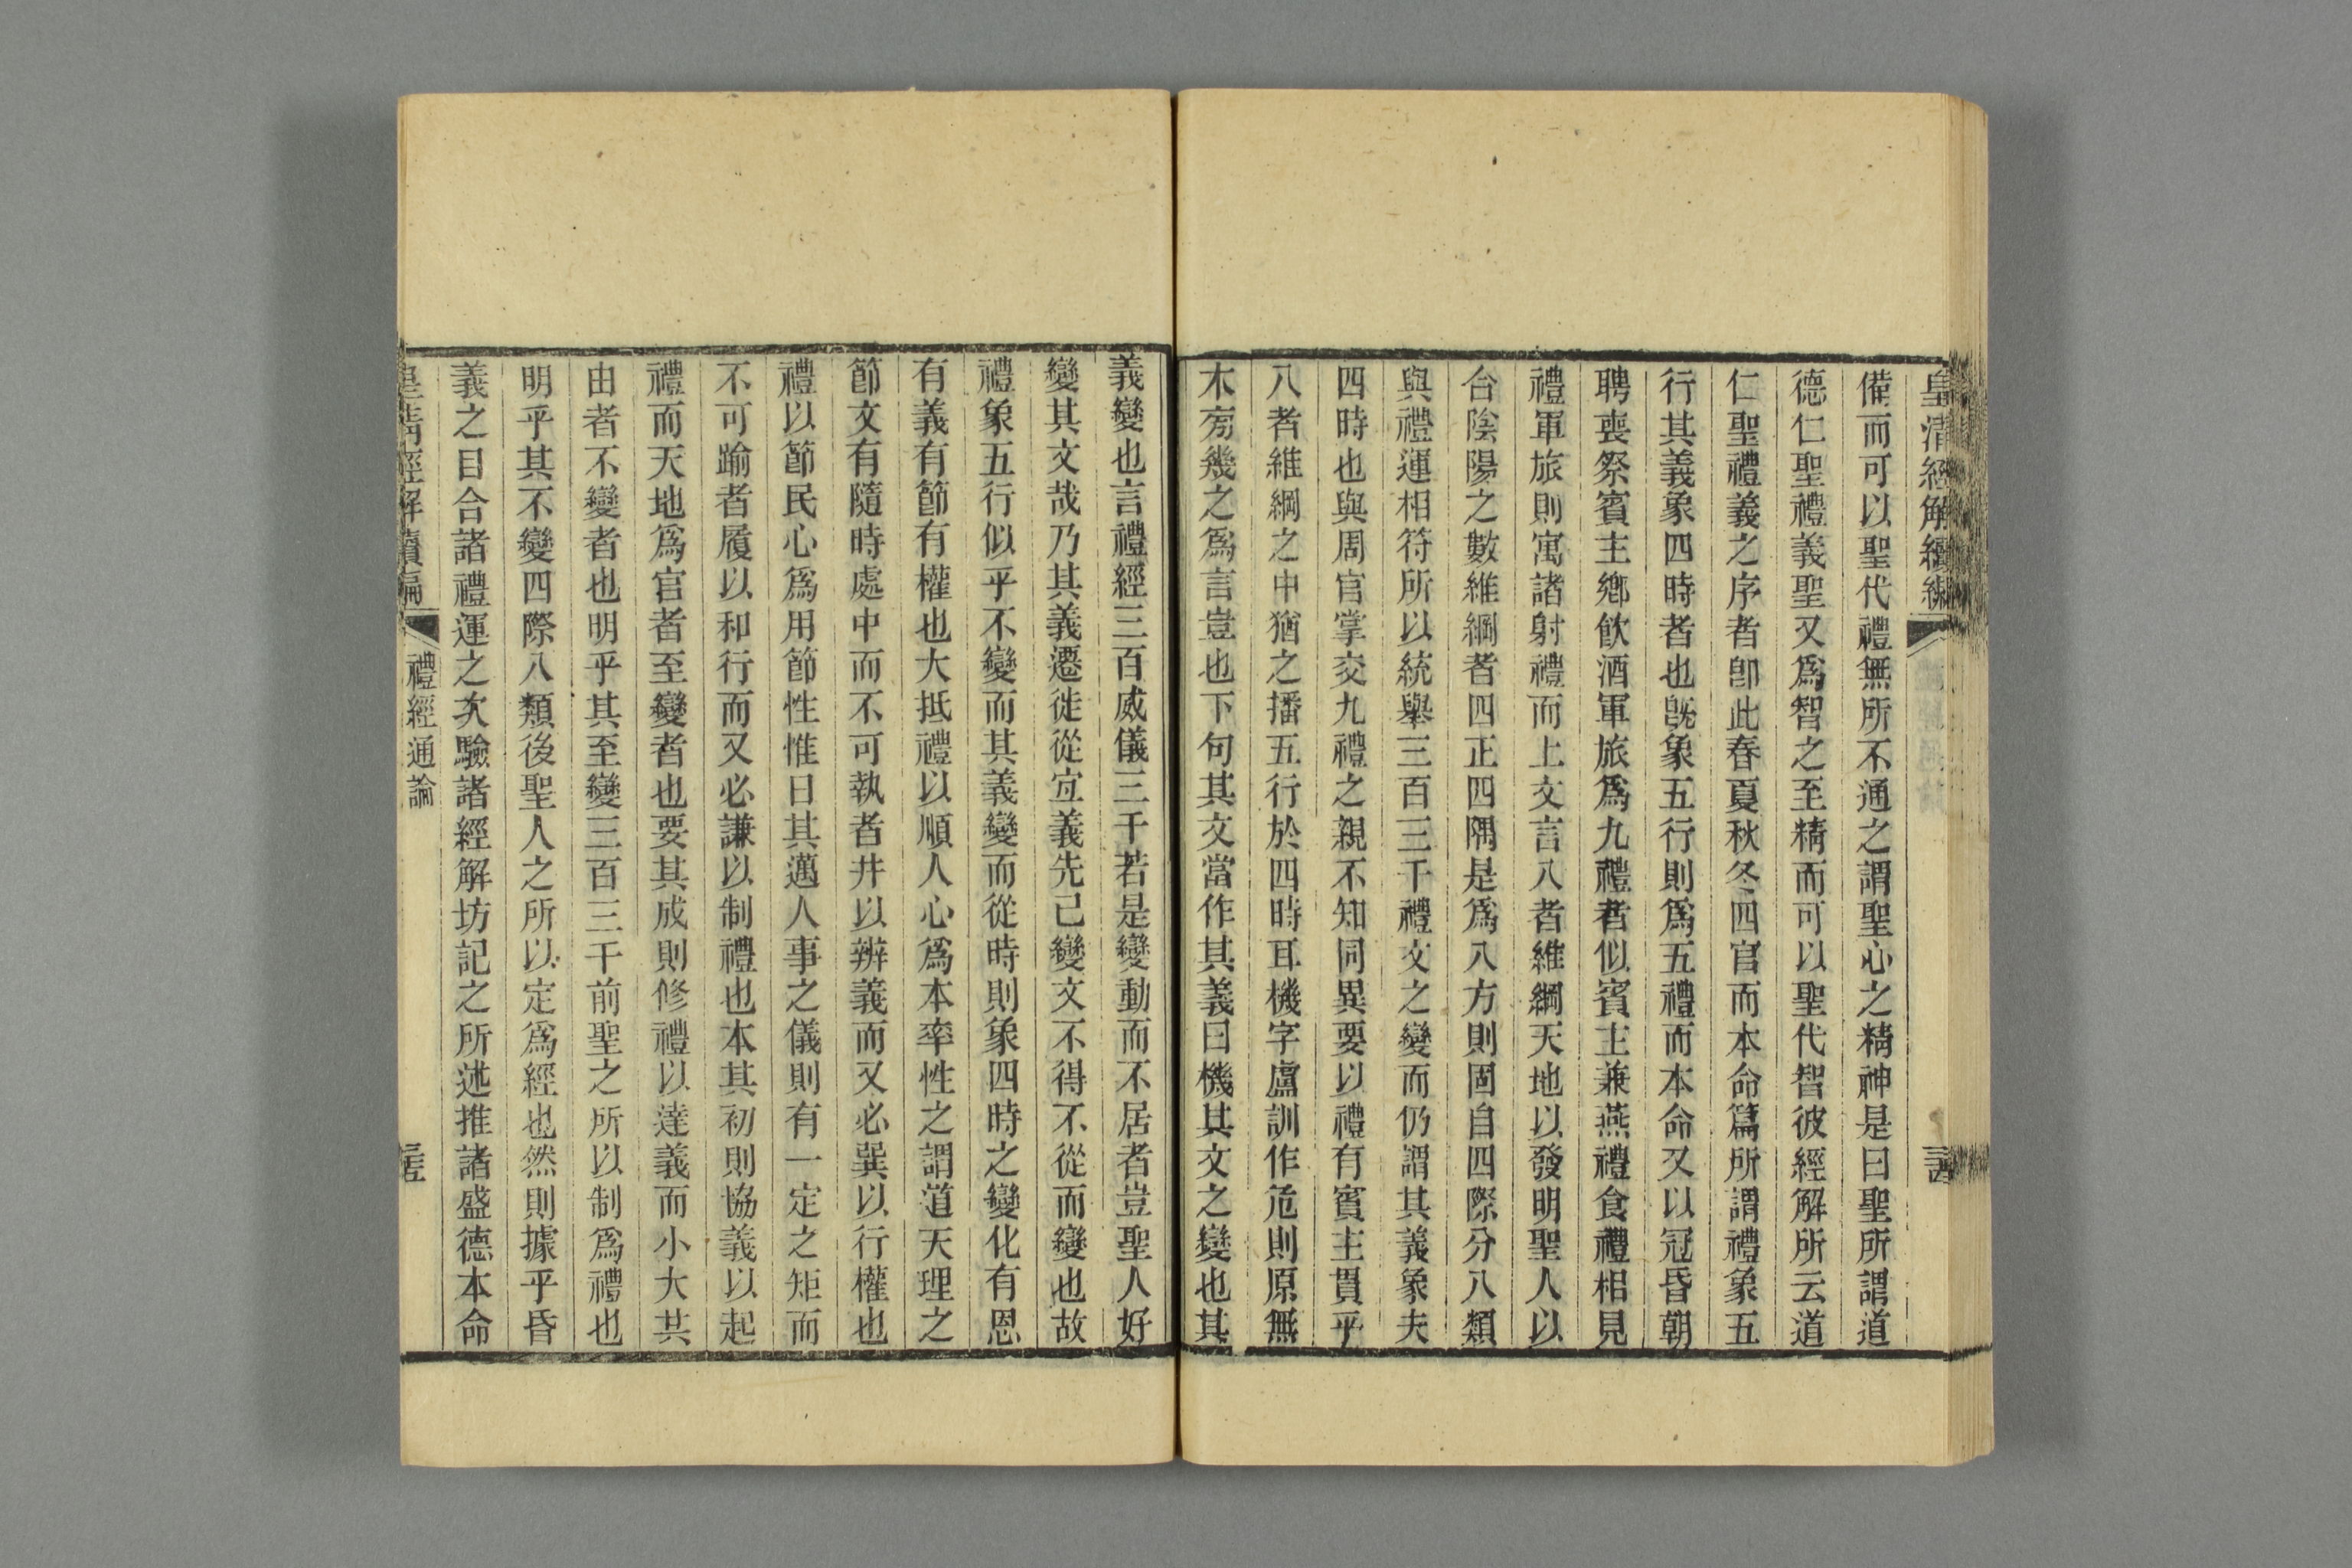 皇清經解續編
備而可以聖代禮無所不通之謂聖心之精神是曰聖所謂道
德仁聖禮義聖又爲智之至精而可以聖代智彼經解所云道
仁聖禮義之序者卽此春夏秋冬四官而本命篇所謂禮象五
行其義象四時者也旣象五行則爲五禮而本命又以冠昏朝
聘喪祭賓主鄉飮酒軍旅爲九禮者似賓主兼燕禮食禮相見
禮軍旅則寓諸射禮而上文言八者維綱天地以發明聖人以
合陰陽之數維綱者四正四隅是爲八方則固自四際分八類
與禮運相符所以統舉三百三千禮文之變而仍謂其義象夫
四時也與周官掌交九禮之親不知同異要以禮有賓主貫乎
八者維綱之中猶之播五行於四時耳機字盧訓作危則原無
木旁幾之爲言豈也下句其文當作其義曰機其文之變也其
義變也言禮經三百威儀三千若是變動而不居者豈聖人好
變其文哉乃其義遷徙從宜義先已變文不得不從而變也故
禮象五行似乎不變而其義變而從時則象四時之變化有恩
有義有節有權也大抵禮以順人心爲本率性之謂道天理之
節文有隨時處中而不可執者井以辨義而又必巽以行權也
禮以節民心爲用節性惟日其邁人事之儀則有一定之矩而
不可踰者履以和行而又必謙以制禮也本其初則協義以起
禮而天地爲官者至變者也要其成則修禮以達義而小大共
由者不變者也明乎其至變三百三千前聖之所以制爲禮也
明乎其不變四際八類後聖人之所以定爲經也然則據乎昏
義之目合諸禮運之次驗諸經解坊記之所述推諸盛德本命
皇清經解續編
禮經通論